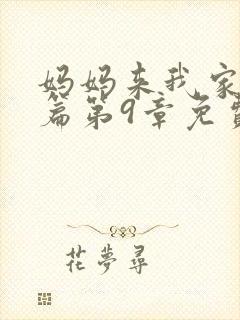 妈妈来我家
篇第9章免费
花夢尋